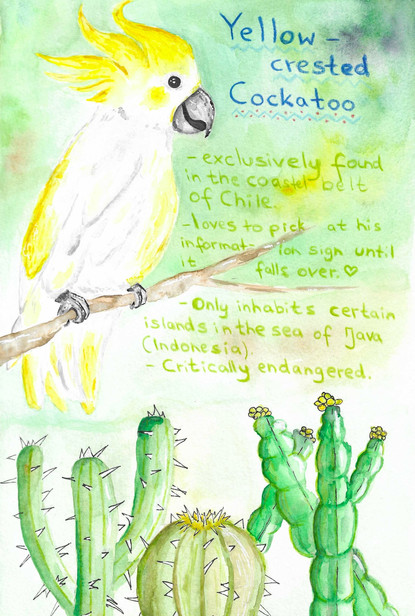 Yellow-
crested
Cockatoo
- exclusively found
in the coastel belt
of Chile.
- loves to pick at his
informat- ion sign until
it falls over. ♡
- Only inhabits certain
islands in the sea of Java
(Indonesia).
- Critically endangered.